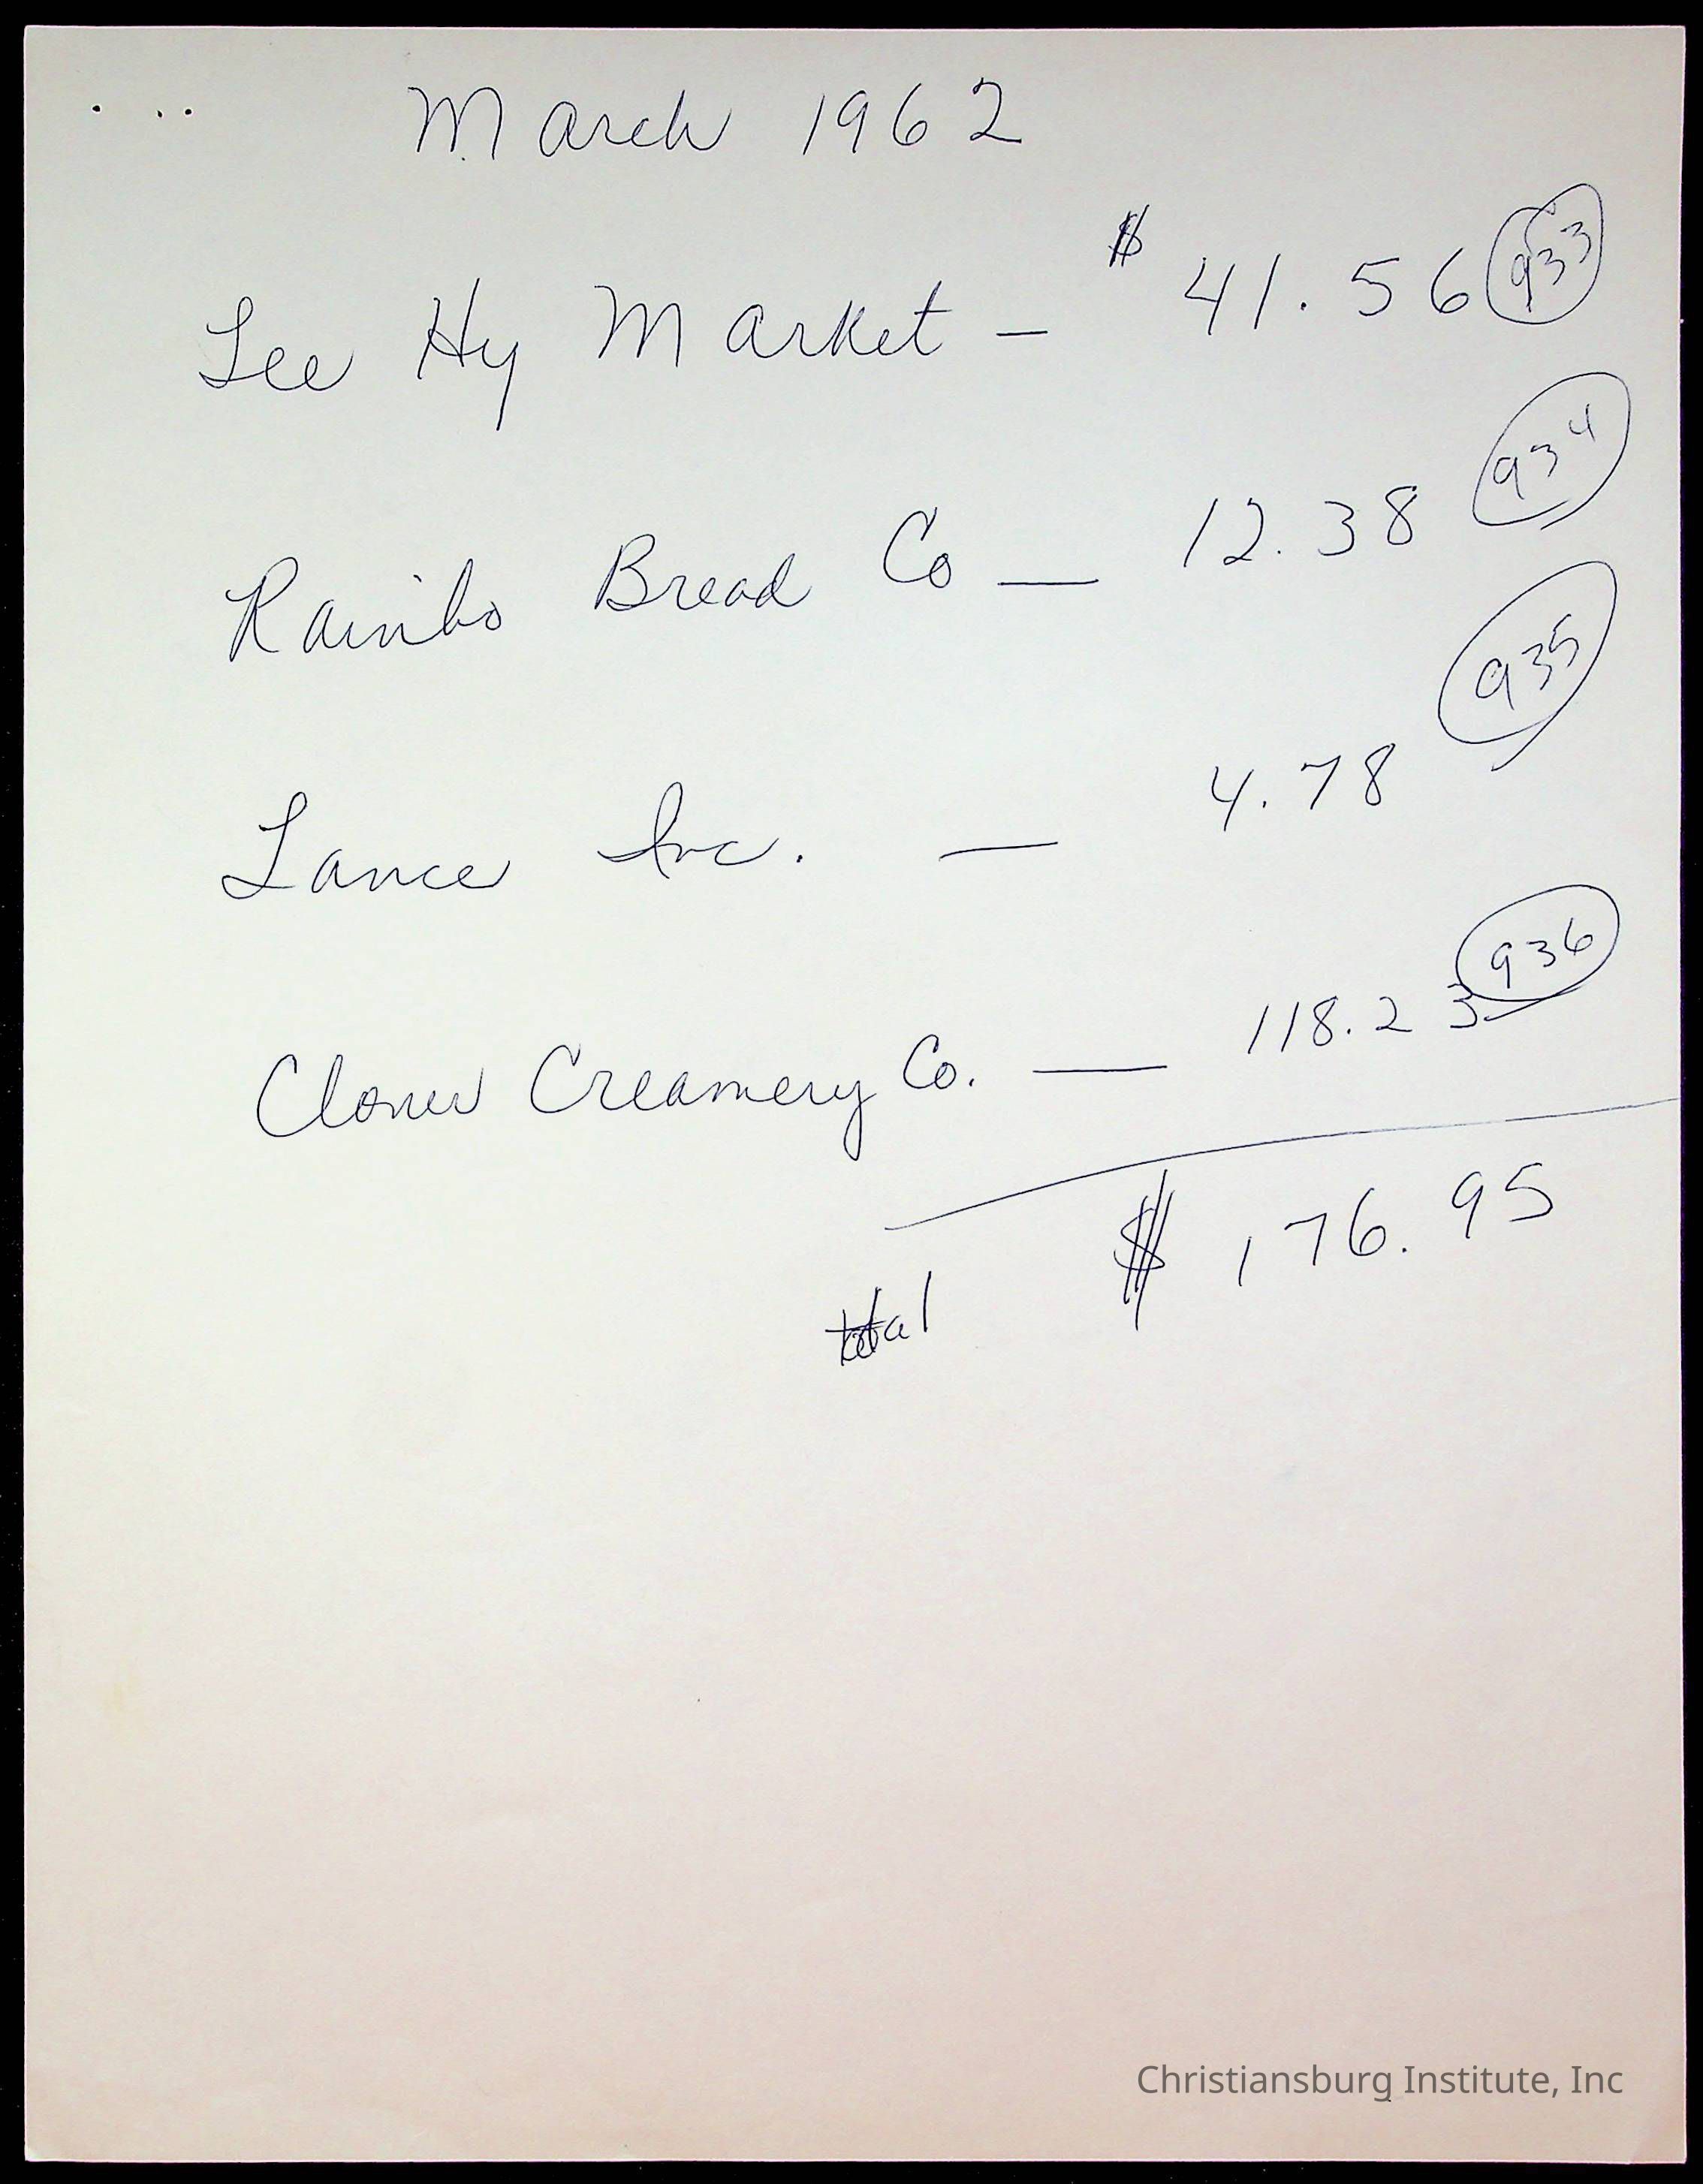 March 1962
Lee Hy Market - $ 41.56 933
Rainbo Bread Co — 12.38 934
Lance Inc. — 4.78 935
Clover Creamery Co. — 118.23 936
total $ 176.95
Christiansburg Institute, Inc